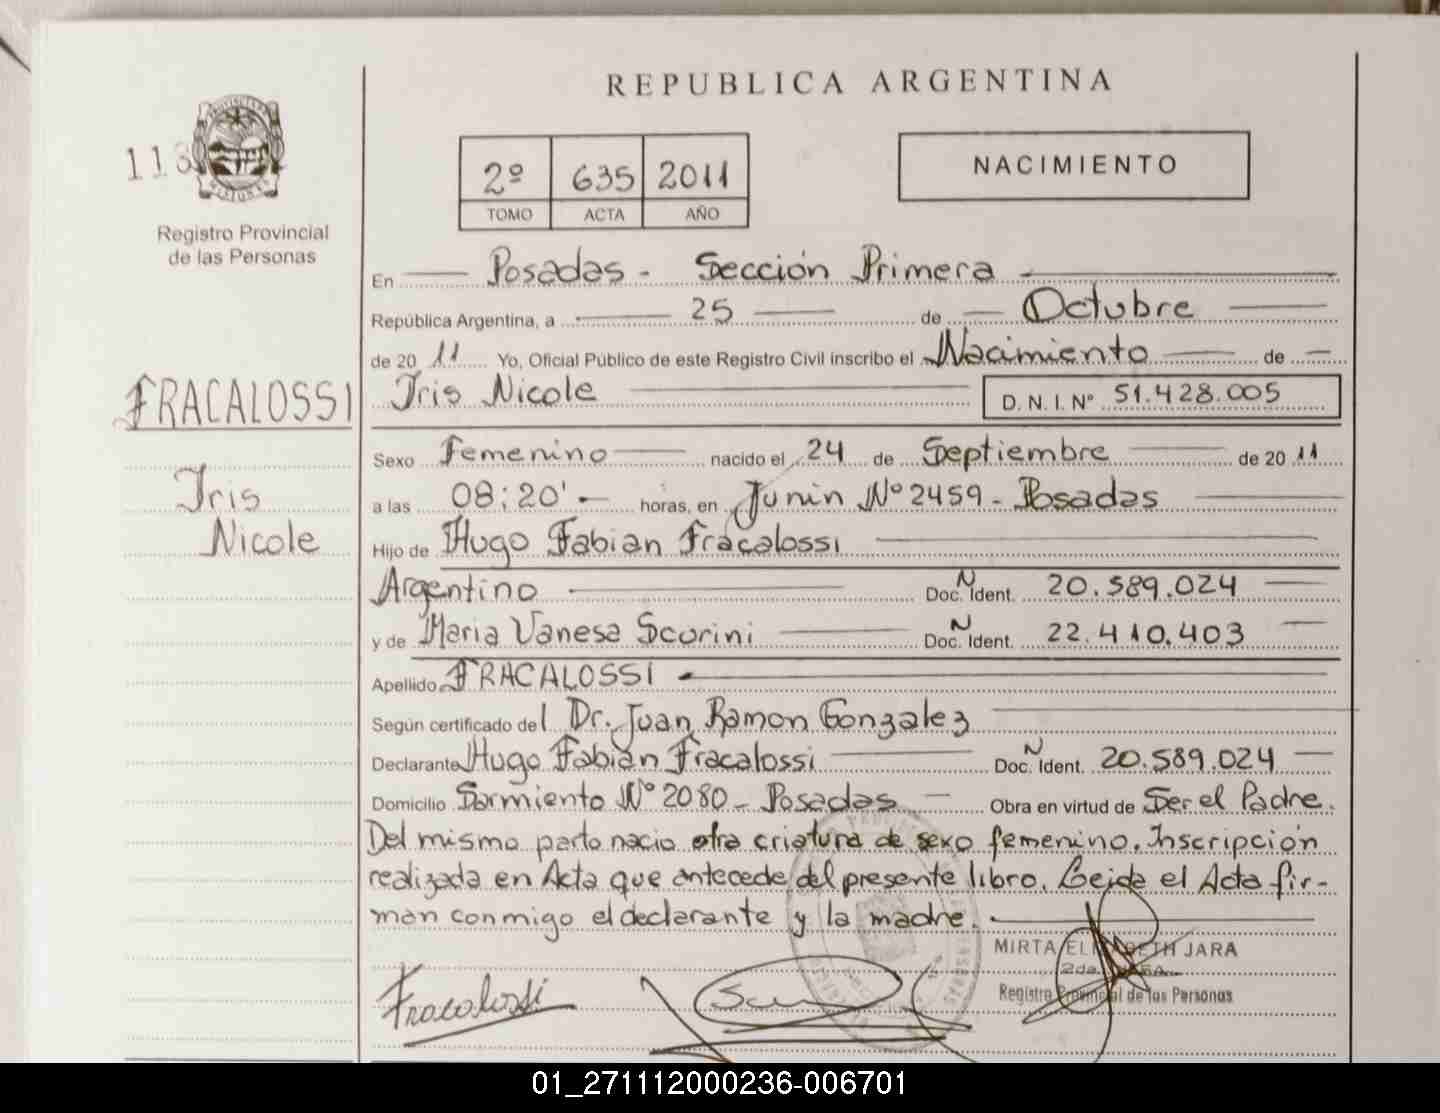 REPUBLICA ARGENTINA
NACIMIENTO
2º 635 2011
TOMO ACTA AÑO
113
Registro Provincial
de las Personas
En Posadas - Sección Primera
República Argentina, a 25 de Octubre
de 20 11 Yo, Oficial Público de este Registro Civil inscribo el Nacimiento de
FRACALOSSI
Iris Nicole D. N. I. Nº 51.428.005
Iris
Nicole
Sexo Femenino nacido el 24 de Septiembre de 20 11
a las 08:20' horas, en Junin Nº 2459 - Posadas
Hijo de Hugo Fabian Fracalossi
Argentino Doc. Ident. N 20.589.024
y de Maria Vanesa Scorini Doc. Ident. N 22.410.403
Apellido FRACALOSSI
Según certificado del Dr. Juan Ramon Gonzalez
Declarante Hugo Fabián Fracalossi Doc. Ident. N 20.589.024
Domicilio Sarmiento Nº 2080 - Posadas Obra en virtud de Ser el Padre.
Del mismo parto nacio otra criatura de sexo femenino. Inscripción
realizada en Acta que antecede del presente libro. Leida el Acta fir-
man conmigo el declarante y la madre.
MIRTA ELIZABETH JARA
Registro Provincial de las Personas
Fracalossi
01_271112000236-006701